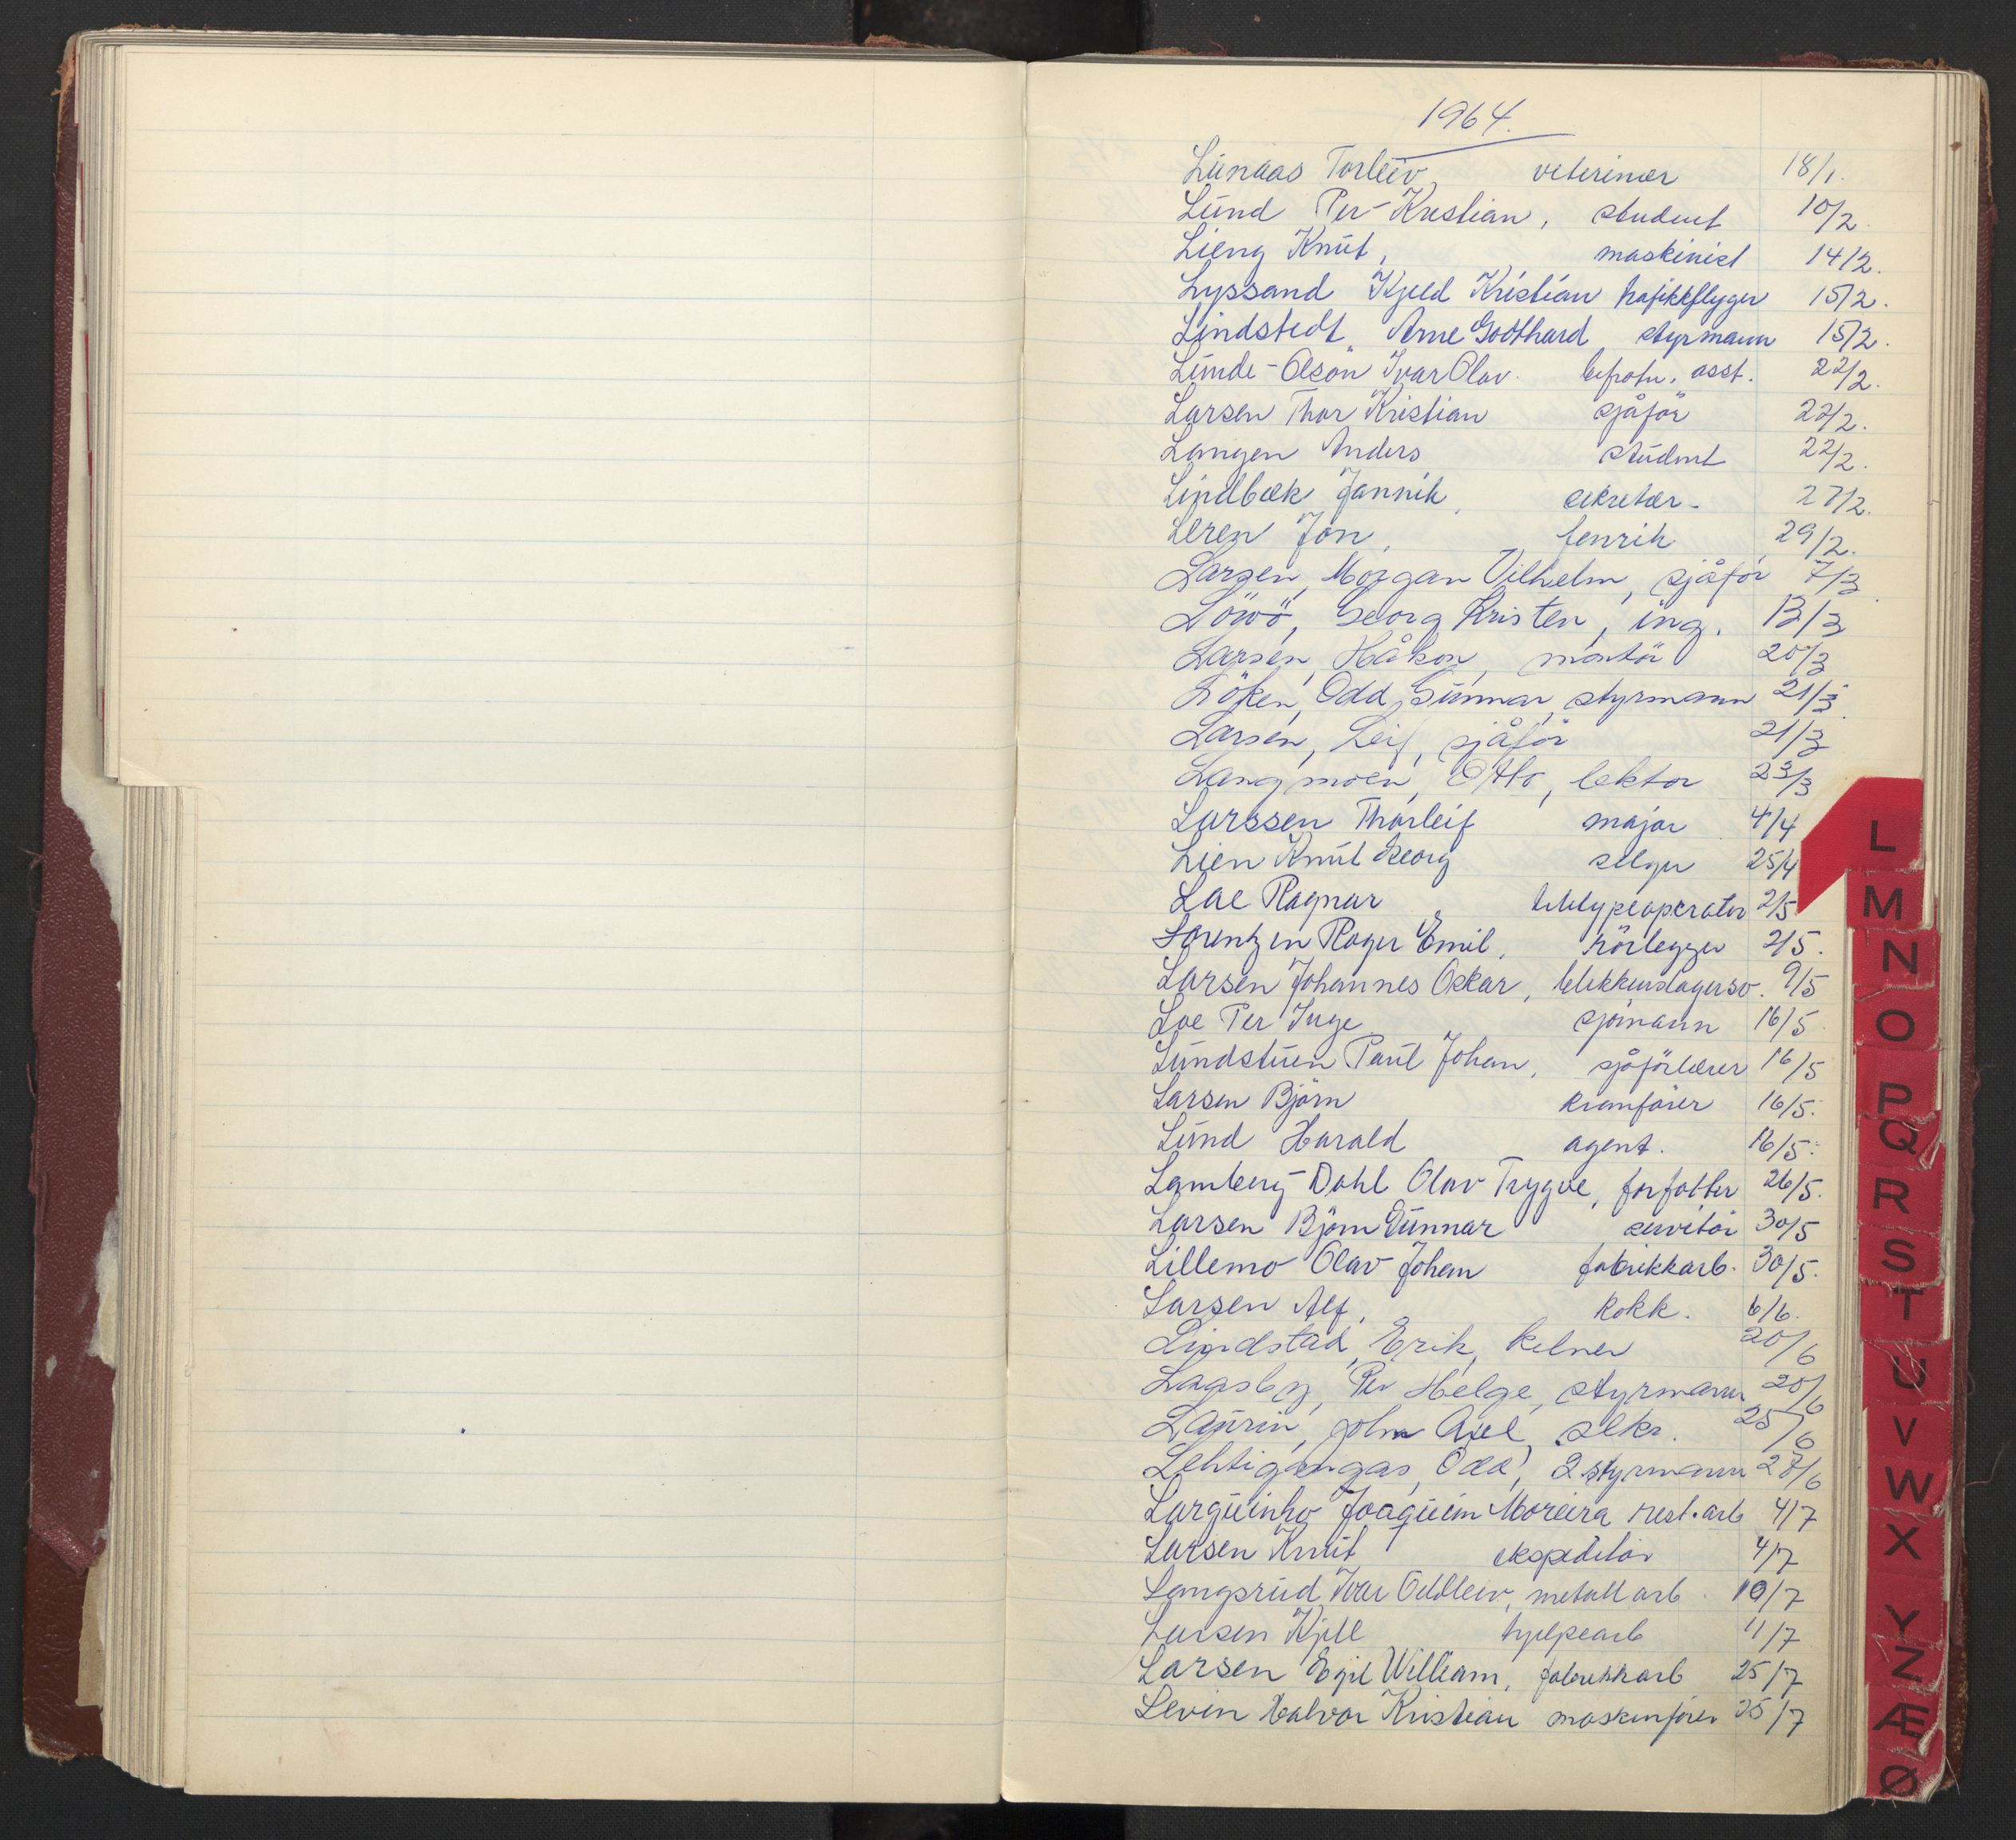 1964.
Lunaas Torleiv, veterinær 18/1.
Lund Per-Kristian, student 10/2.
Lieng Knut, maskinist 14/2.
Lyssand Kjeld Kristian trafikkflyger 15/2.
Lindstedt, Arne Godthard, styrmann 15/2.
Lunde-Olson Ivar Olav. asst. 22/2.
Larsen Thor Kristian sjåför 22/2.
Langen Anders student 22/2.
Lindbæk Jannik, sekretær. 27/2.
Leren Jon, fenrik 29/2.
Larsen, Morgan Vilhelm, sjåför 7/3.
Löwö, Georg Kristen, ing. 13/3
Larsen, Håkon, montör 20/3
Löken, Odd Gunnar, styrmann 21/3.
Larsen, Leif, sjåför 21/3
Langmoen, Otto, lektor 23/3
Larssen Thorleif major 4/4
Lien Knut Georg selger 25/4
Loe Ragnar teletypeoperatör 2/5
Lorentzen Roger Emil, rörlegger 2/5.
Larsen Johannes Oskar, blikkenslagersv. 9/5
Loe Per Inge sjömann 16/5.
Lundstuen Paul Johan, sjåförlærer 16/5
Larsen Björn kranförer 16/5.
Lund Harald agent. 16/5.
Lamberg-Dahl Olav Trygve, forfatter 26/5.
Larsen Björn Gunnar servitör 30/5
Lillemo Olav Johan fabrikkarb. 30/5.
Larsen Alf, kokk. 6/6.
Lindstad, Erik, kelner 20/6
Lagsby, Per Helge, styrmann 20/6
Laurin, John Axel, sekr. 25/6
Lehtigangas, Odd, 2 styrmann 27/6
Larguinho Joaquim Moreira rest. arb 4/7
Larsen Knut ekspeditör 4/7
Langsrud, Ivar Oddleiv, metall arb. 10/7
Larsen Kjell hjelpearb 11/7
Larsen Egil William, fabrikkarb 25/7
Levin Halvor Kristian maskinförer 25/7
L
M
N
O
P
Q
R
S
T
U
V
W
X
Y
Z
Æ
Ø